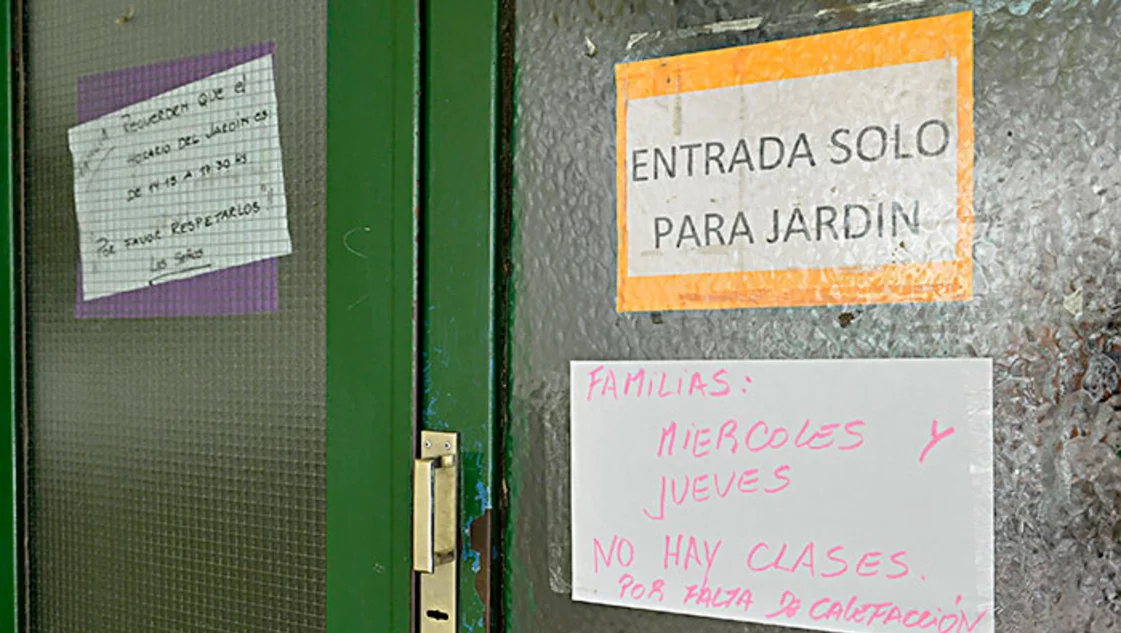 RECUERDEN QUE El
HORARIO DEL JARDIN ES
DE 14:15 A 17:30 HS
POR FAVOR RESPETARLOS!!
Las Seños
ENTRADA SOLO
PARA JARDIN
FAMILIAS:
MIERCOLES Y
JUEVES
NO HAY CLASES.
POR FALTA DE CALEFACCIÓN